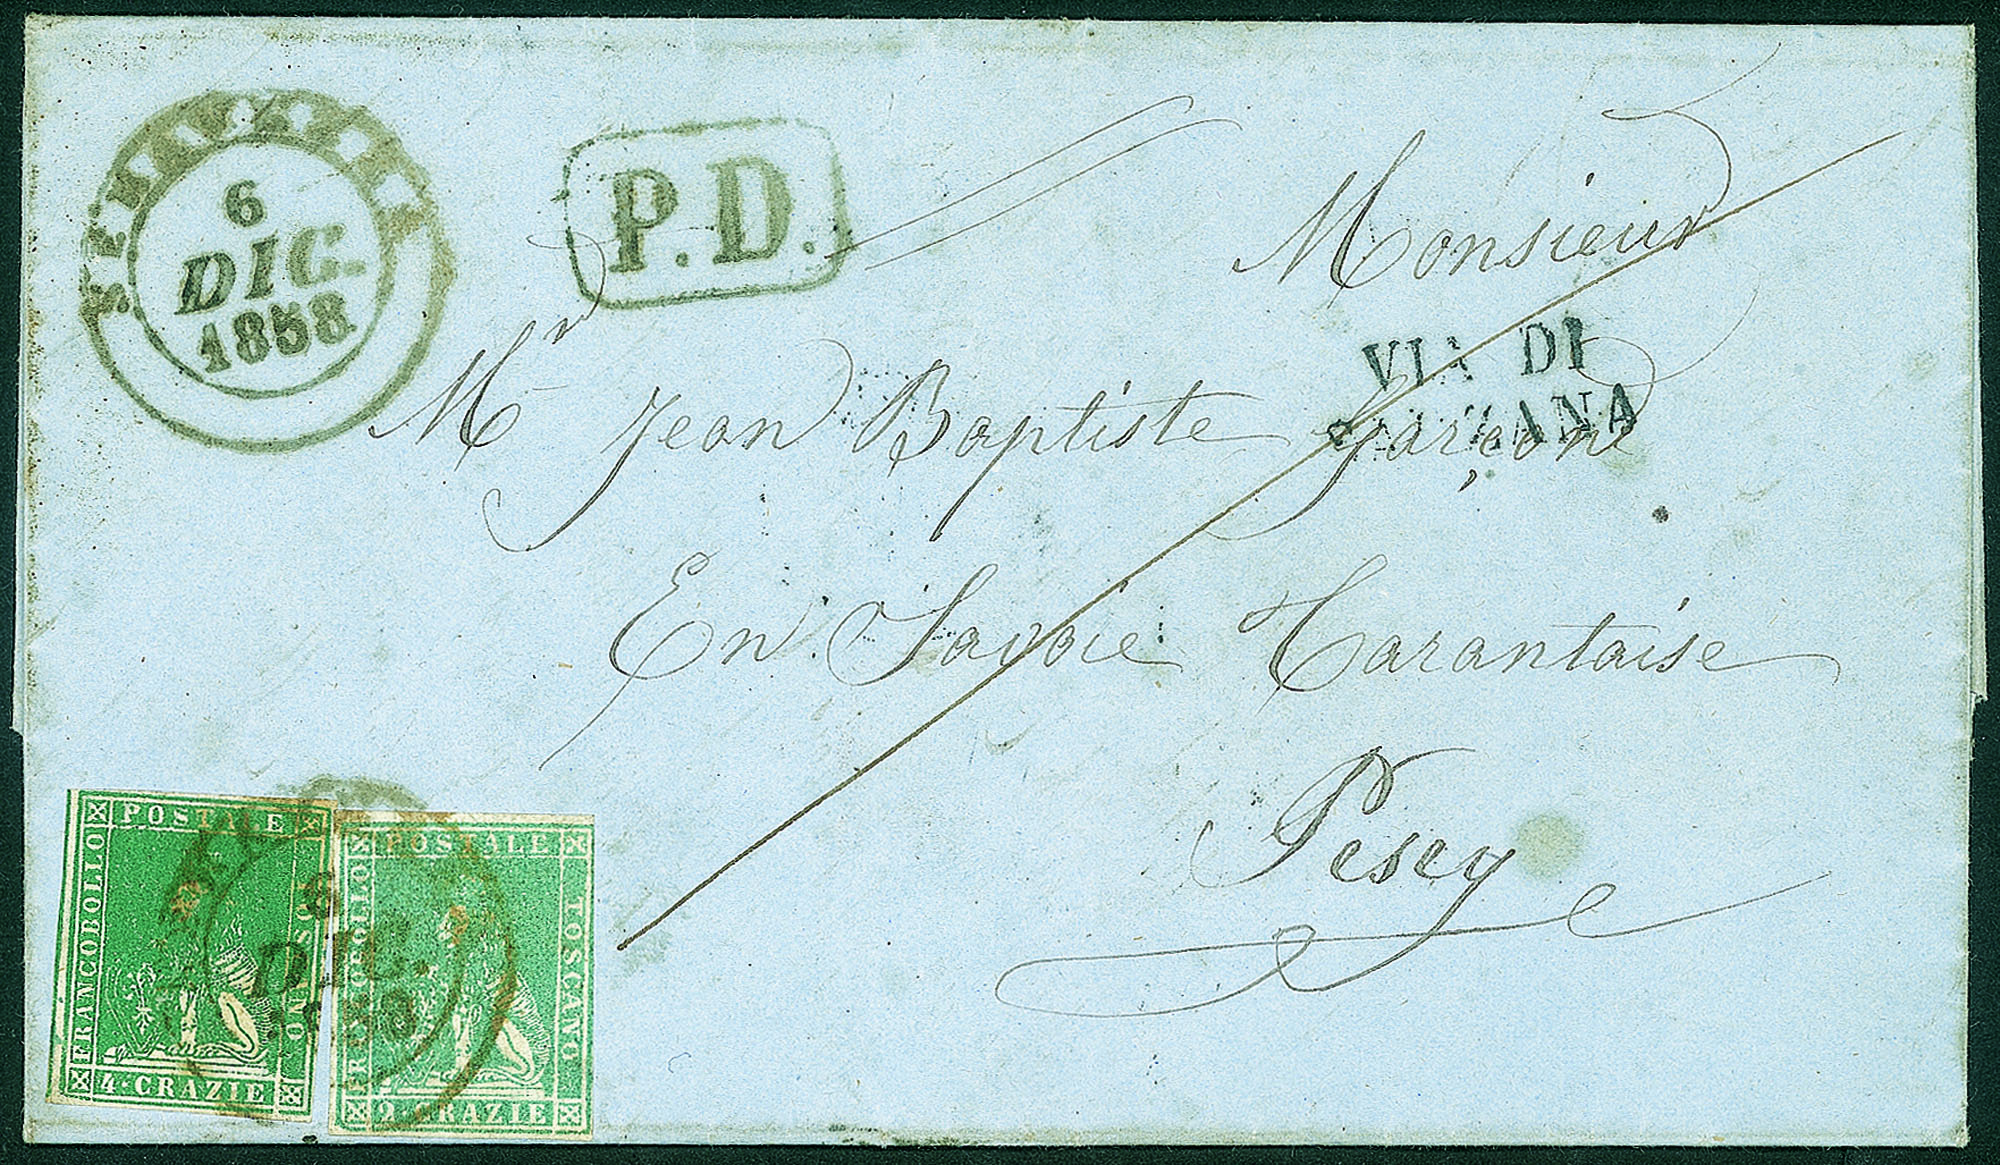 6
DIC.
1858
P.D.
Monsieur
VIA DI
SARZANA
Mr Jean Baptiste Garçone
En Savoie Tarantaise
Pesey
POSTALE
FRANCOBOLLO
TOSCANO
4 · CRAZIE
6
DIC.
1858
POSTALE
FRANCOBOLLO
TOSCANO
2 · CRAZIE